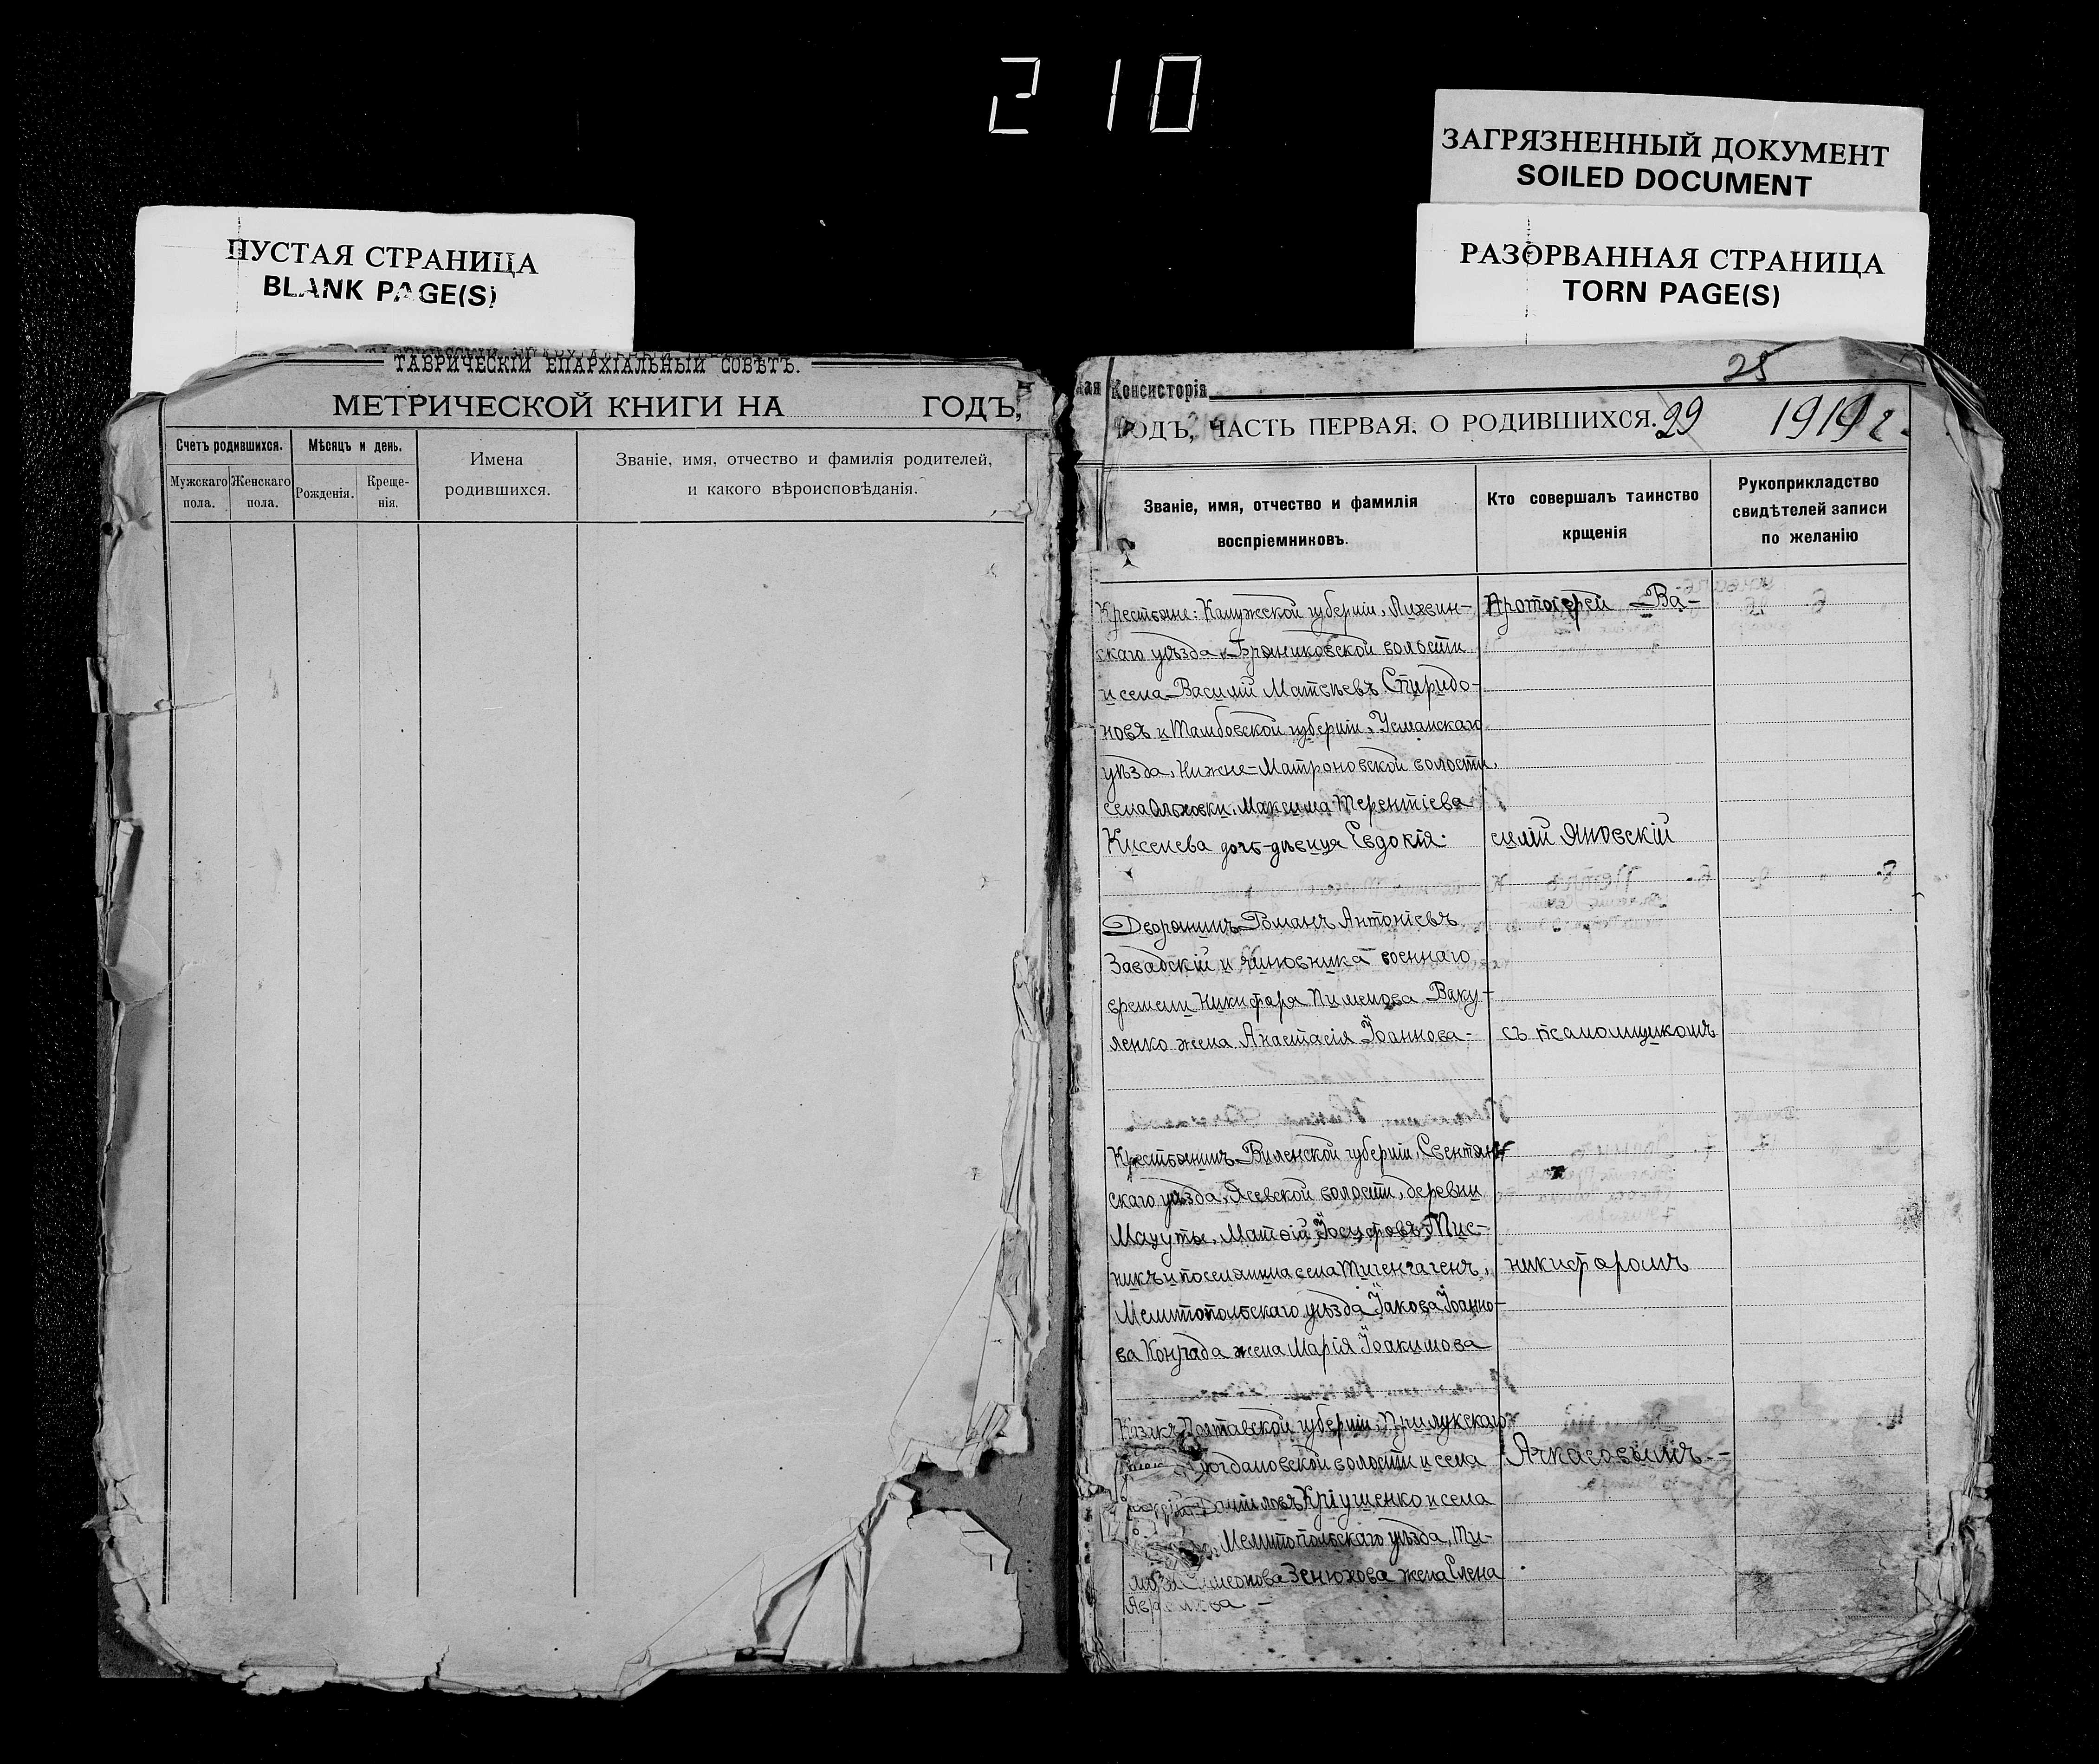 210
ЗАГРЯЗНЕННЫЙ ДОКУМЕНТ
SOILED DOCUMENT
РАЗОРВАННАЯ СТРАНИЦА
TORN PAGE(S)
ПУСТАЯ СТРАНИЦА
BLANK PAGE(S)
ТАВРИЧЕСКІЙ ЕПАРХІАЛЬНЫЙ СОВѢТЪ.
МЕТРИЧЕСКОЙ КНИГИ НА ГОДЪ,
Счетъ родившихся.
Мужскаго пола.
Женскаго пола.
Мѣсяцъ и день.
Рожденія.
Креще-
нія.
Имена
родившихся.
Званіе, имя, отчество и фамилія родителей,
и какого вѣроисповѣданія.
25
Консисторія
ГОДЪ, ЧАСТЬ ПЕРВАЯ. О РОДИВШИХСЯ. 29 1919 г.
Званіе, имя, отчество и фамилія
воспріемниковъ.
Кто совершалъ таинство
крщенія
Рукоприкладство
свидѣтелей записи
по желанію
Крестьяне: Калужской губерніи, Лихвин-
скаго уѣзда, волости
и села Василій Матвѣевъ Спиридо-
новъ и Тамбовской губерніи, Усманскаго
уѣзда, Нижне-Матреновской волости,
села Ольховки, Максима Терентіева
Киселева дочь-дѣвица Евдокія.
Дворянинъ Романъ Антоніевъ
Завадскій и чиновника военнаго
времени Никифора Пименова Ваку-
ленко жена Анастасія Іоаннова
Крестьянинъ Виленской губерніи, Свентян-
скаго уѣзда, Ясевской волости, деревни
Мацуты, Матѳій Іосифовъ Пис-
никъ и поселянина села Тигенгагенъ,
Мелитопольскаго уѣзда Іакова Іоанно-
ва Конрада жена Марія Іоакимова
Казакъ Полтавской губерніи, Прилукскаго
Богдановской волости и села
Даніиловъ Кріушенко и села
Мелитопольскаго уѣзда, Ти-
Симеонова Зенюхова жена Елена
Протоіерей Ва-
силій Яновскій
съ псаломщикомъ
никифоромъ
Ачкасовымъ.